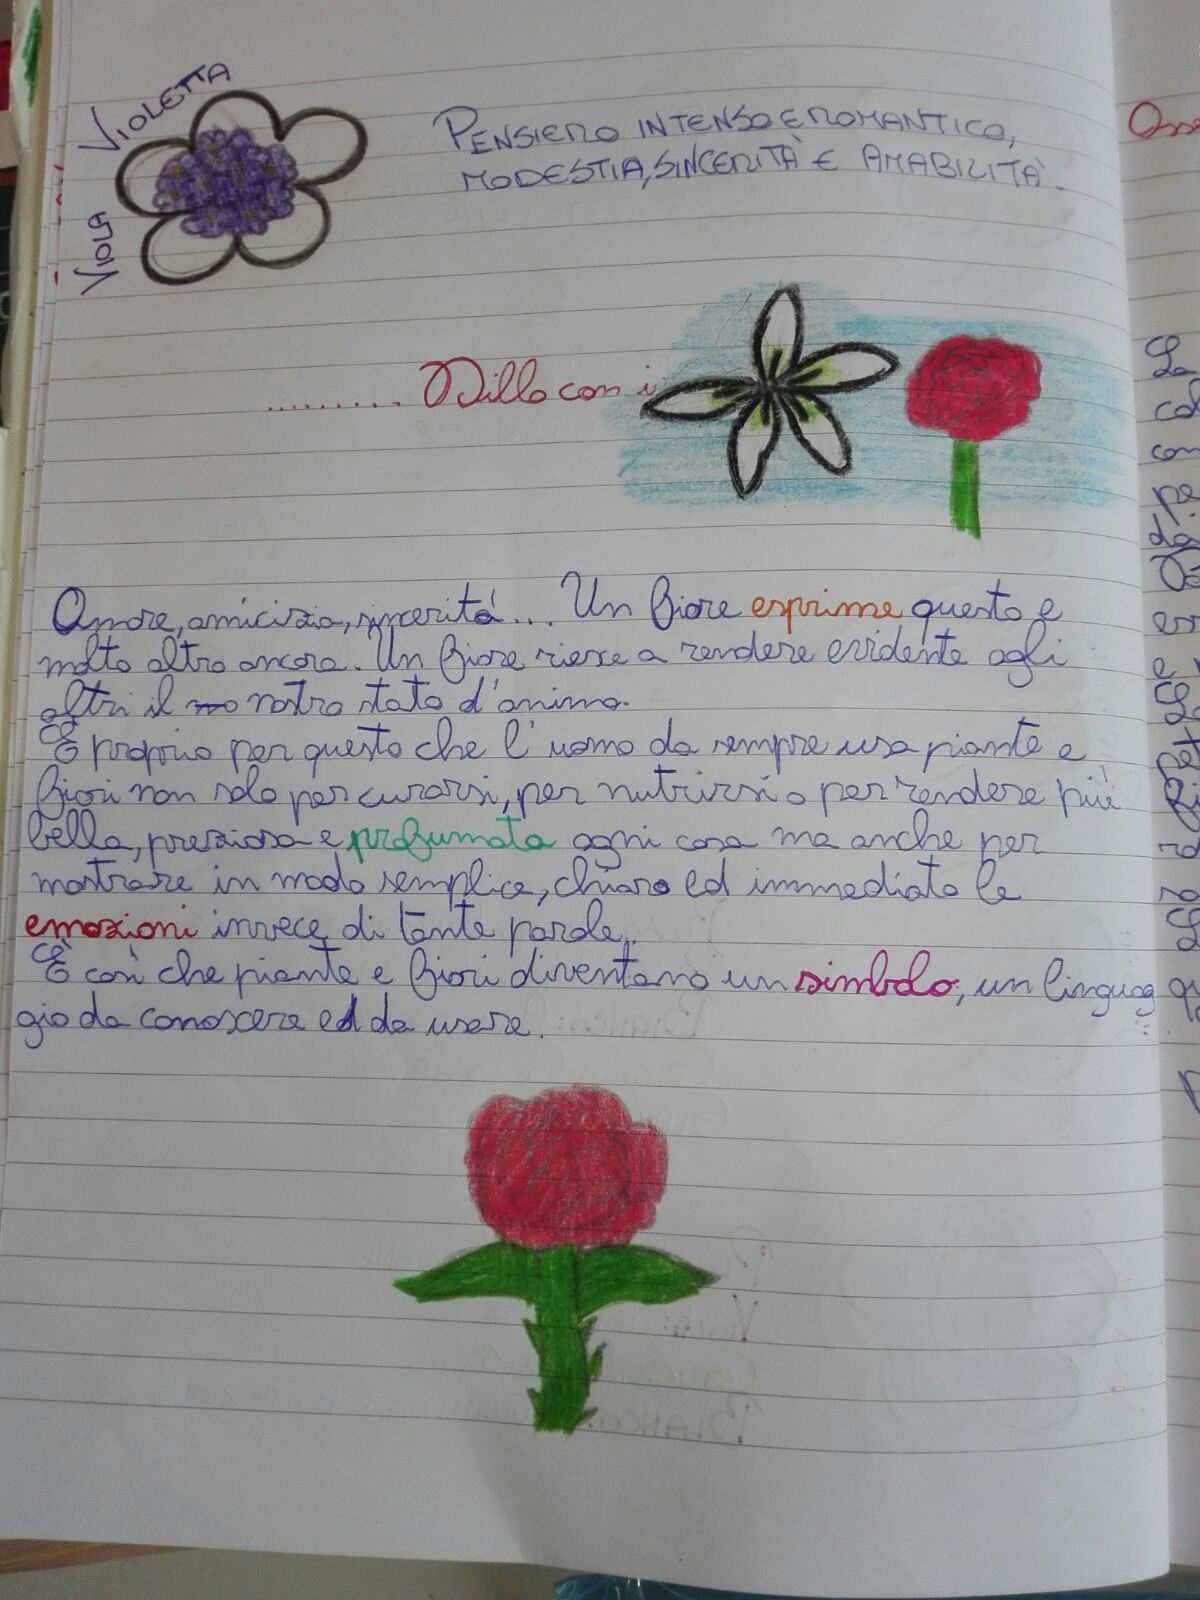 VIOLETTA
VIOLA
PENSIERO INTENSO E ROMANTICO,
MODESTIA, SINCERITÀ E AMABILITÀ.
........ Dillo con i
Amore, amicizia, sincerità... Un fiore esprime questo e
molto altro ancora. Un fiore riesce a rendere evidente agli
altri il nostro stato d'animo.
È proprio per questo che l'uomo da sempre usa piante e
fiori non solo per curarsi, per nutrirsi o per rendere più
bella, preziosa e profumata ogni cosa ma anche per
mostrare in modo semplice, chiaro ed immediato le
emozioni invece di tante parole.
È così che piante e fiori diventano un simbolo, un linguag
gio da conoscere ed da usare.